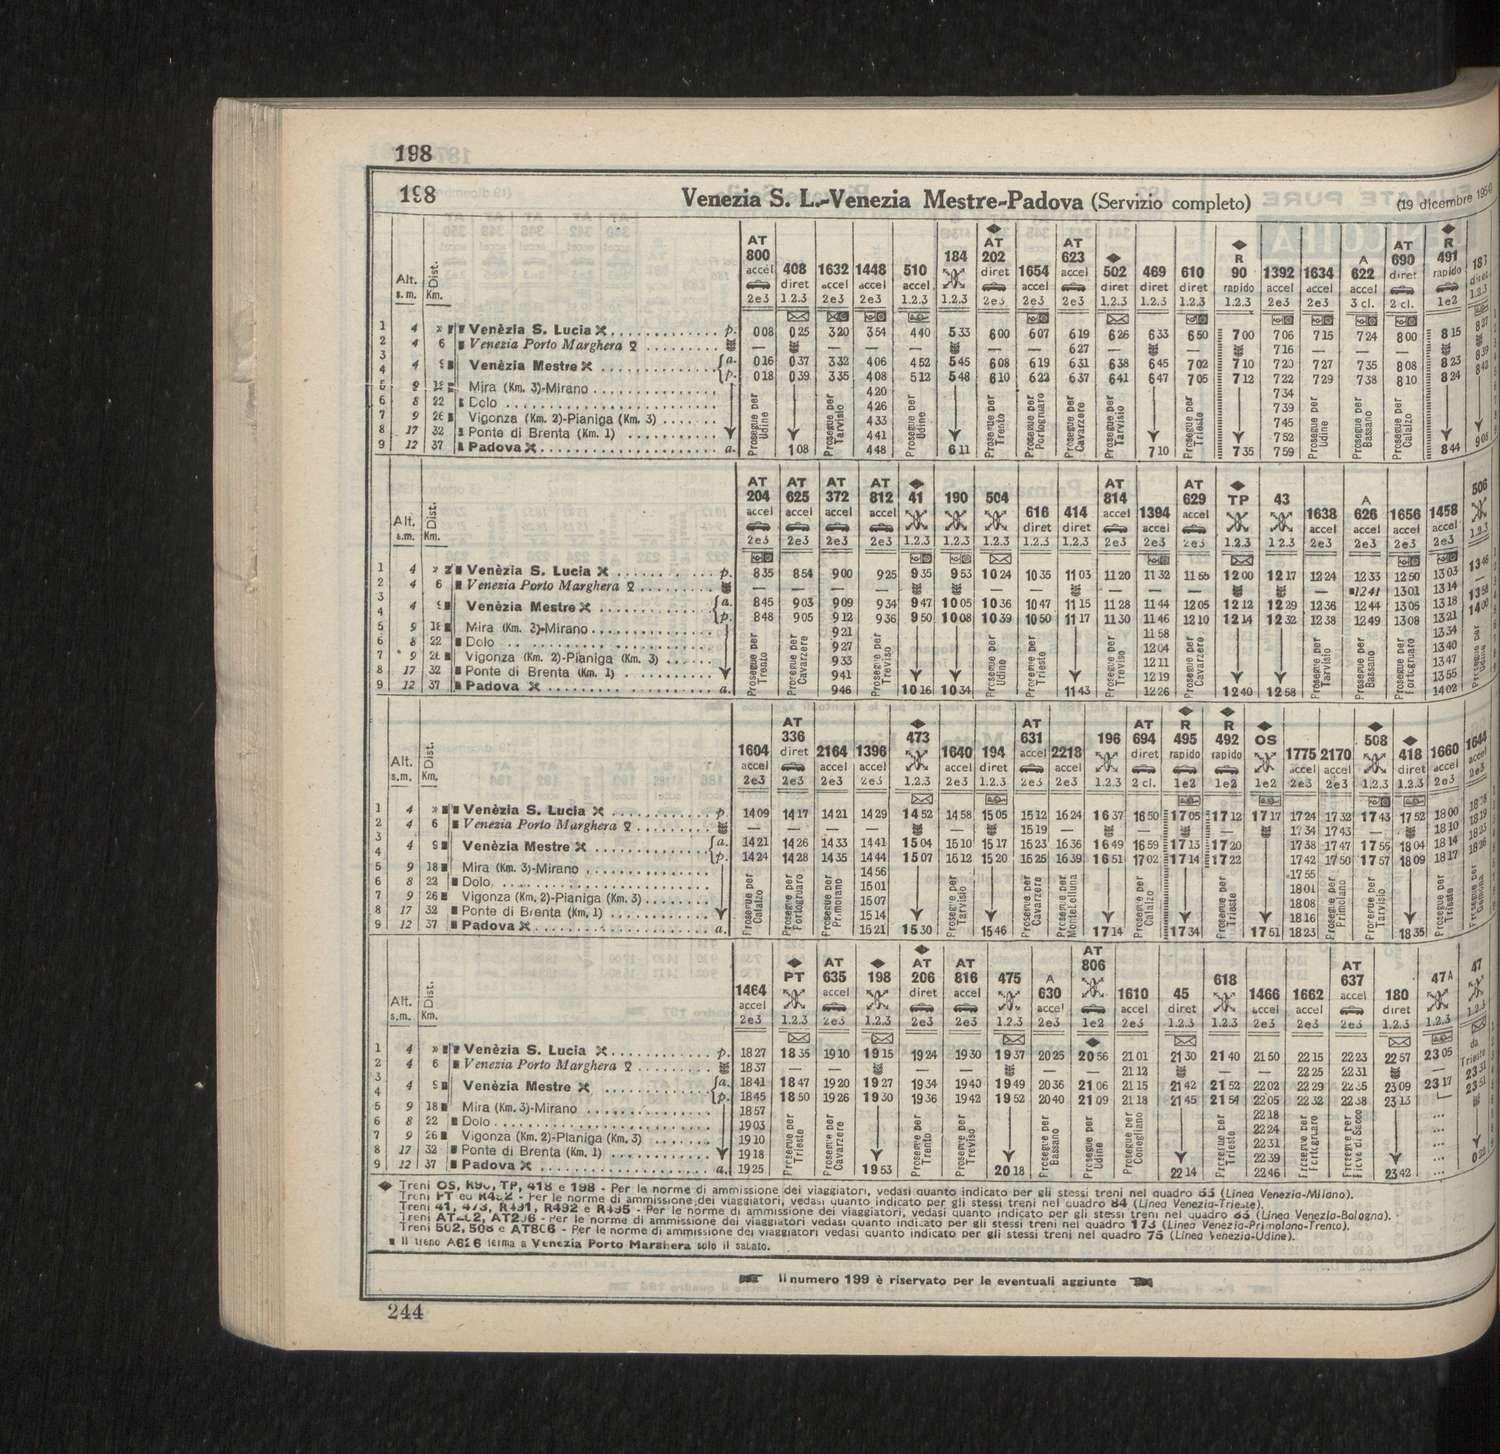 198
198 Venezia S. L.-Venezia Mestre-Padova (Servizio completo) (19 dicembre 1954)
Alt. s.m. Dist. Km. AT 800 accel 2e3 408 diret 1.2.3 1632 accel 2e3 1448 accel 2e3 510 accel 1.2.3 184 1.2.3 AT 202 diret 2e3 1654 accel 2e3 AT 623 accel 2e3 502 diret 1.2.3 469 diret 1.2.3 610 diret 1.2.3 R 90 rapido 1.2.3 1392 accel 2e3 1634 accel 2e3 A 622 accel 3 cl. AT 690 diret 2 cl. R 491 rapido 1e2 187 diret 1.2.3
1 4 » Venèzia S. Lucia p. 0 08 0 25 3 20 3 54 4 40 5 33 6 00 6 07 6 19 6 26 6 33 6 50 7 00 7 06 7 15 7 24 8 00 8 15 8 27
2 4 6 Venezia Porto Marghera — — — — — 6 27 — — 7 16 — — —
3 4 9 Venèzia Mestre a. 0 16 0 37 3 32 4 06 4 52 5 45 6 08 6 19 6 31 6 38 6 45 7 02 7 10 7 20 7 27 7 35 8 08 8 23 8 39
4 p. 0 18 0 39 3 35 4 08 5 12 5 48 6 10 6 22 6 37 6 41 6 47 7 05 7 12 7 22 7 29 7 38 8 10 8 24 8 43
5 9 18 Mira (Km. 3)-Mirano 4 20 7 34
6 8 22 Dolo 4 26 7 39
7 9 26 Vigonza (Km. 2)-Pianiga (Km. 3) 4 33 7 45
8 17 32 Ponte di Brenta (Km. 1) 4 41 7 52
9 12 37 Padova a. 1 08 4 48 6 11 7 10 7 35 7 59 8 44
Prosegue per Udine Prosegue per Tarvisio Prosegue per Udine Prosegue per Trento Prosegue per Portogruaro Prosegue per Cavarzere Prosegue per Tarvisio Prosegue per Trieste Prosegue per Udine Prosegue per Bassano Prosegue per Calalzo
Alt. s.m. Dist. Km. AT 204 accel 2e3 AT 625 accel 2e3 AT 372 accel 2e3 AT 812 accel 2e3 41 1.2.3 190 1.2.3 504 1.2.3 616 diret 1.2.3 414 diret 1.2.3 AT 814 accel 2e3 1394 accel 2e3 AT 629 accel 2e3 TP 1.2.3 43 1.2.3 1638 accel 2e3 A 626 accel 2e3 1656 accel 2e3 1458 accel 2e3 506 1.2.3
1 4 » Venèzia S. Lucia p. 8 35 8 54 9 00 9 25 9 35 9 53 10 24 10 35 11 03 11 20 11 32 11 55 12 00 12 17 12 24 12 33 12 50 13 03
2 4 6 Venezia Porto Marghera — — — — — — — — — — — 12 41 13 01 13 14
3 4 9 Venèzia Mestre a. 8 45 9 03 9 09 9 34 9 47 10 05 10 36 10 47 11 15 11 28 11 44 12 05 12 12 12 29 12 36 12 44 13 05 13 18 13 58
4 p. 8 48 9 05 9 12 9 36 9 50 10 08 10 39 10 50 11 17 11 30 11 46 12 10 12 14 12 32 12 38 12 49 13 08 13 21 14 00
5 9 18 Mira (Km. 3)-Mirano 9 21 11 58 13 34
6 8 22 Dolo 9 27 12 04 13 40
7 9 26 Vigonza (Km. 2)-Pianiga (Km. 3) 9 33 12 11 13 47
8 17 32 Ponte di Brenta (Km. 1) 9 41 12 19 13 55
9 12 37 Padova a. 9 46 10 16 10 34 11 43 12 26 12 40 12 58 14 02
Prosegue per Trento Prosegue per Cavarzere Prosegue per Treviso Prosegue per Udine Prosegue per Trieste Prosegue per Treviso Prosegue per Cavarzere Prosegue per Tarvisio Prosegue per Bassano Prosegue per Portogruaro Prosegue per Udine
Alt. s.m. Dist. Km. 1604 accel 2e3 AT 336 diret 2e3 2164 accel 2e3 1396 accel 2e3 473 1.2.3 1640 accel 2e3 194 diret 1.2.3 AT 631 accel 2e3 2218 accel 2e3 196 1.2.3 AT 694 diret 2 cl. R 495 rapido 1e2 R 492 rapido 1e2 OS 1e2 1775 accel 2e3 2170 accel 2e3 508 1.2.3 418 diret 1.2.3 1660 accel 2e3 1644 accel 2e3
1 4 » Venèzia S. Lucia p. 14 09 14 17 14 21 14 29 14 52 14 58 15 05 15 12 16 24 16 37 16 50 17 05 17 12 17 17 17 24 17 32 17 43 17 52 18 00
2 4 6 Venezia Porto Marghera — — — — — 15 19 — — 17 34 17 43 — 18 10 18 19
3 4 9 Venèzia Mestre a. 14 21 14 26 14 33 14 41 15 04 15 10 15 17 15 23 16 36 16 49 16 59 17 13 17 20 17 38 17 47 17 55 18 04 18 14 18 23
4 p. 14 24 14 28 14 35 14 44 15 07 15 12 15 20 15 25 16 39 16 51 17 02 17 14 17 22 17 42 17 50 17 57 18 09 18 17 18 26
5 9 18 Mira (Km. 3)-Mirano 14 56 17 55
6 8 22 Dolo 15 01 18 01
7 9 26 Vigonza (Km. 2)-Pianiga (Km. 3) 15 07 18 08
8 17 32 Ponte di Brenta (Km. 1) 15 14 18 16
9 12 37 Padova a. 15 21 15 30 15 46 17 14 17 34 17 51 18 23 18 35
Prosegue per Calalzo Prosegue per Portogruaro Prosegue per Primolano Prosegue per Tarvisio Prosegue per Cavarzere Prosegue per Montebelluna Prosegue per Calalzo Prosegue per Trieste Prosegue per Primolano Prosegue per Tarvisio Prosegue per Trieste
Alt. s.m. Dist. Km. 1464 accel 2e3 PT 1.2.3 AT 635 accel 2e3 198 1.2.3 AT 206 diret 2e3 AT 816 accel 2e3 475 1.2.3 A 630 accel 2e3 AT 806 1e2 1610 accel 2e3 45 diret 1.2.3 618 1.2.3 1466 accel 2e3 1662 accel 2e3 AT 637 accel 2e3 180 diret 1.2.3 47A 1.2.3 47 1.2.3
1 4 » Venèzia S. Lucia p. 18 27 18 35 19 10 19 15 19 24 19 30 19 37 20 25 20 56 21 01 21 30 21 40 21 50 22 15 22 23 22 57 23 05 da Trieste
2 4 6 Venezia Porto Marghera 18 37 — — — — — — 21 12 — — 22 25 22 31 — 23 31
3 4 9 Venèzia Mestre a. 18 41 18 47 19 20 19 27 19 34 19 40 19 49 20 36 21 06 21 15 21 42 21 52 22 02 22 29 22 35 23 09 23 17
4 p. 18 45 18 50 19 26 19 30 19 36 19 42 19 52 20 40 21 09 21 18 21 45 21 54 22 05 22 32 22 38 23 13 23 51
5 9 18 Mira (Km. 3)-Mirano 18 57 22 18 ...
6 8 22 Dolo 19 03 22 24 ...
7 9 26 Vigonza (Km. 2)-Pianiga (Km. 3) 19 10 22 31 ...
8 17 32 Ponte di Brenta (Km. 1) 19 18 22 39 ...
9 12 37 Padova a. 19 25 19 53 20 18 22 14 22 46 23 42 ...
Prosegue per Trieste Prosegue per Cavarzere Prosegue per Trento Prosegue per Treviso Prosegue per Bassano Prosegue per Udine Prosegue per Conegliano Prosegue per Trieste Prosegue per Portogruaro Prosegue per Piove di Sacco
Treni OS, R90, TP, 418 e 198 - Per le norme di ammissione dei viaggiatori, vedasi quanto indicato per gli stessi treni nel quadro 53 (Linea Venezia-Milano).
Treni PT ed R492 - Per le norme di ammissione dei viaggiatori, vedasi quanto indicato per gli stessi treni nel quadro 84 (Linea Venezia-Trieste).
Treni 41, 473, R491, R492 e R495 - Per le norme di ammissione dei viaggiatori, vedasi quanto indicato per gli stessi treni nel quadro 63 (Linea Venezia-Bologna).
Treni AT202, AT206 - Per le norme di ammissione dei viaggiatori vedasi quanto indicato per gli stessi treni nel quadro 173 (Linea Venezia-Primolano-Trento).
Treni 502, 508 e AT806 - Per le norme di ammissione dei viaggiatori vedasi quanto indicato per gli stessi treni nel quadro 75 (Linea Venezia-Udine).
Il treno A626 ferma a Venezia Porto Marghera solo il sabato.
Il numero 199 è riservato per le eventuali aggiunte
244